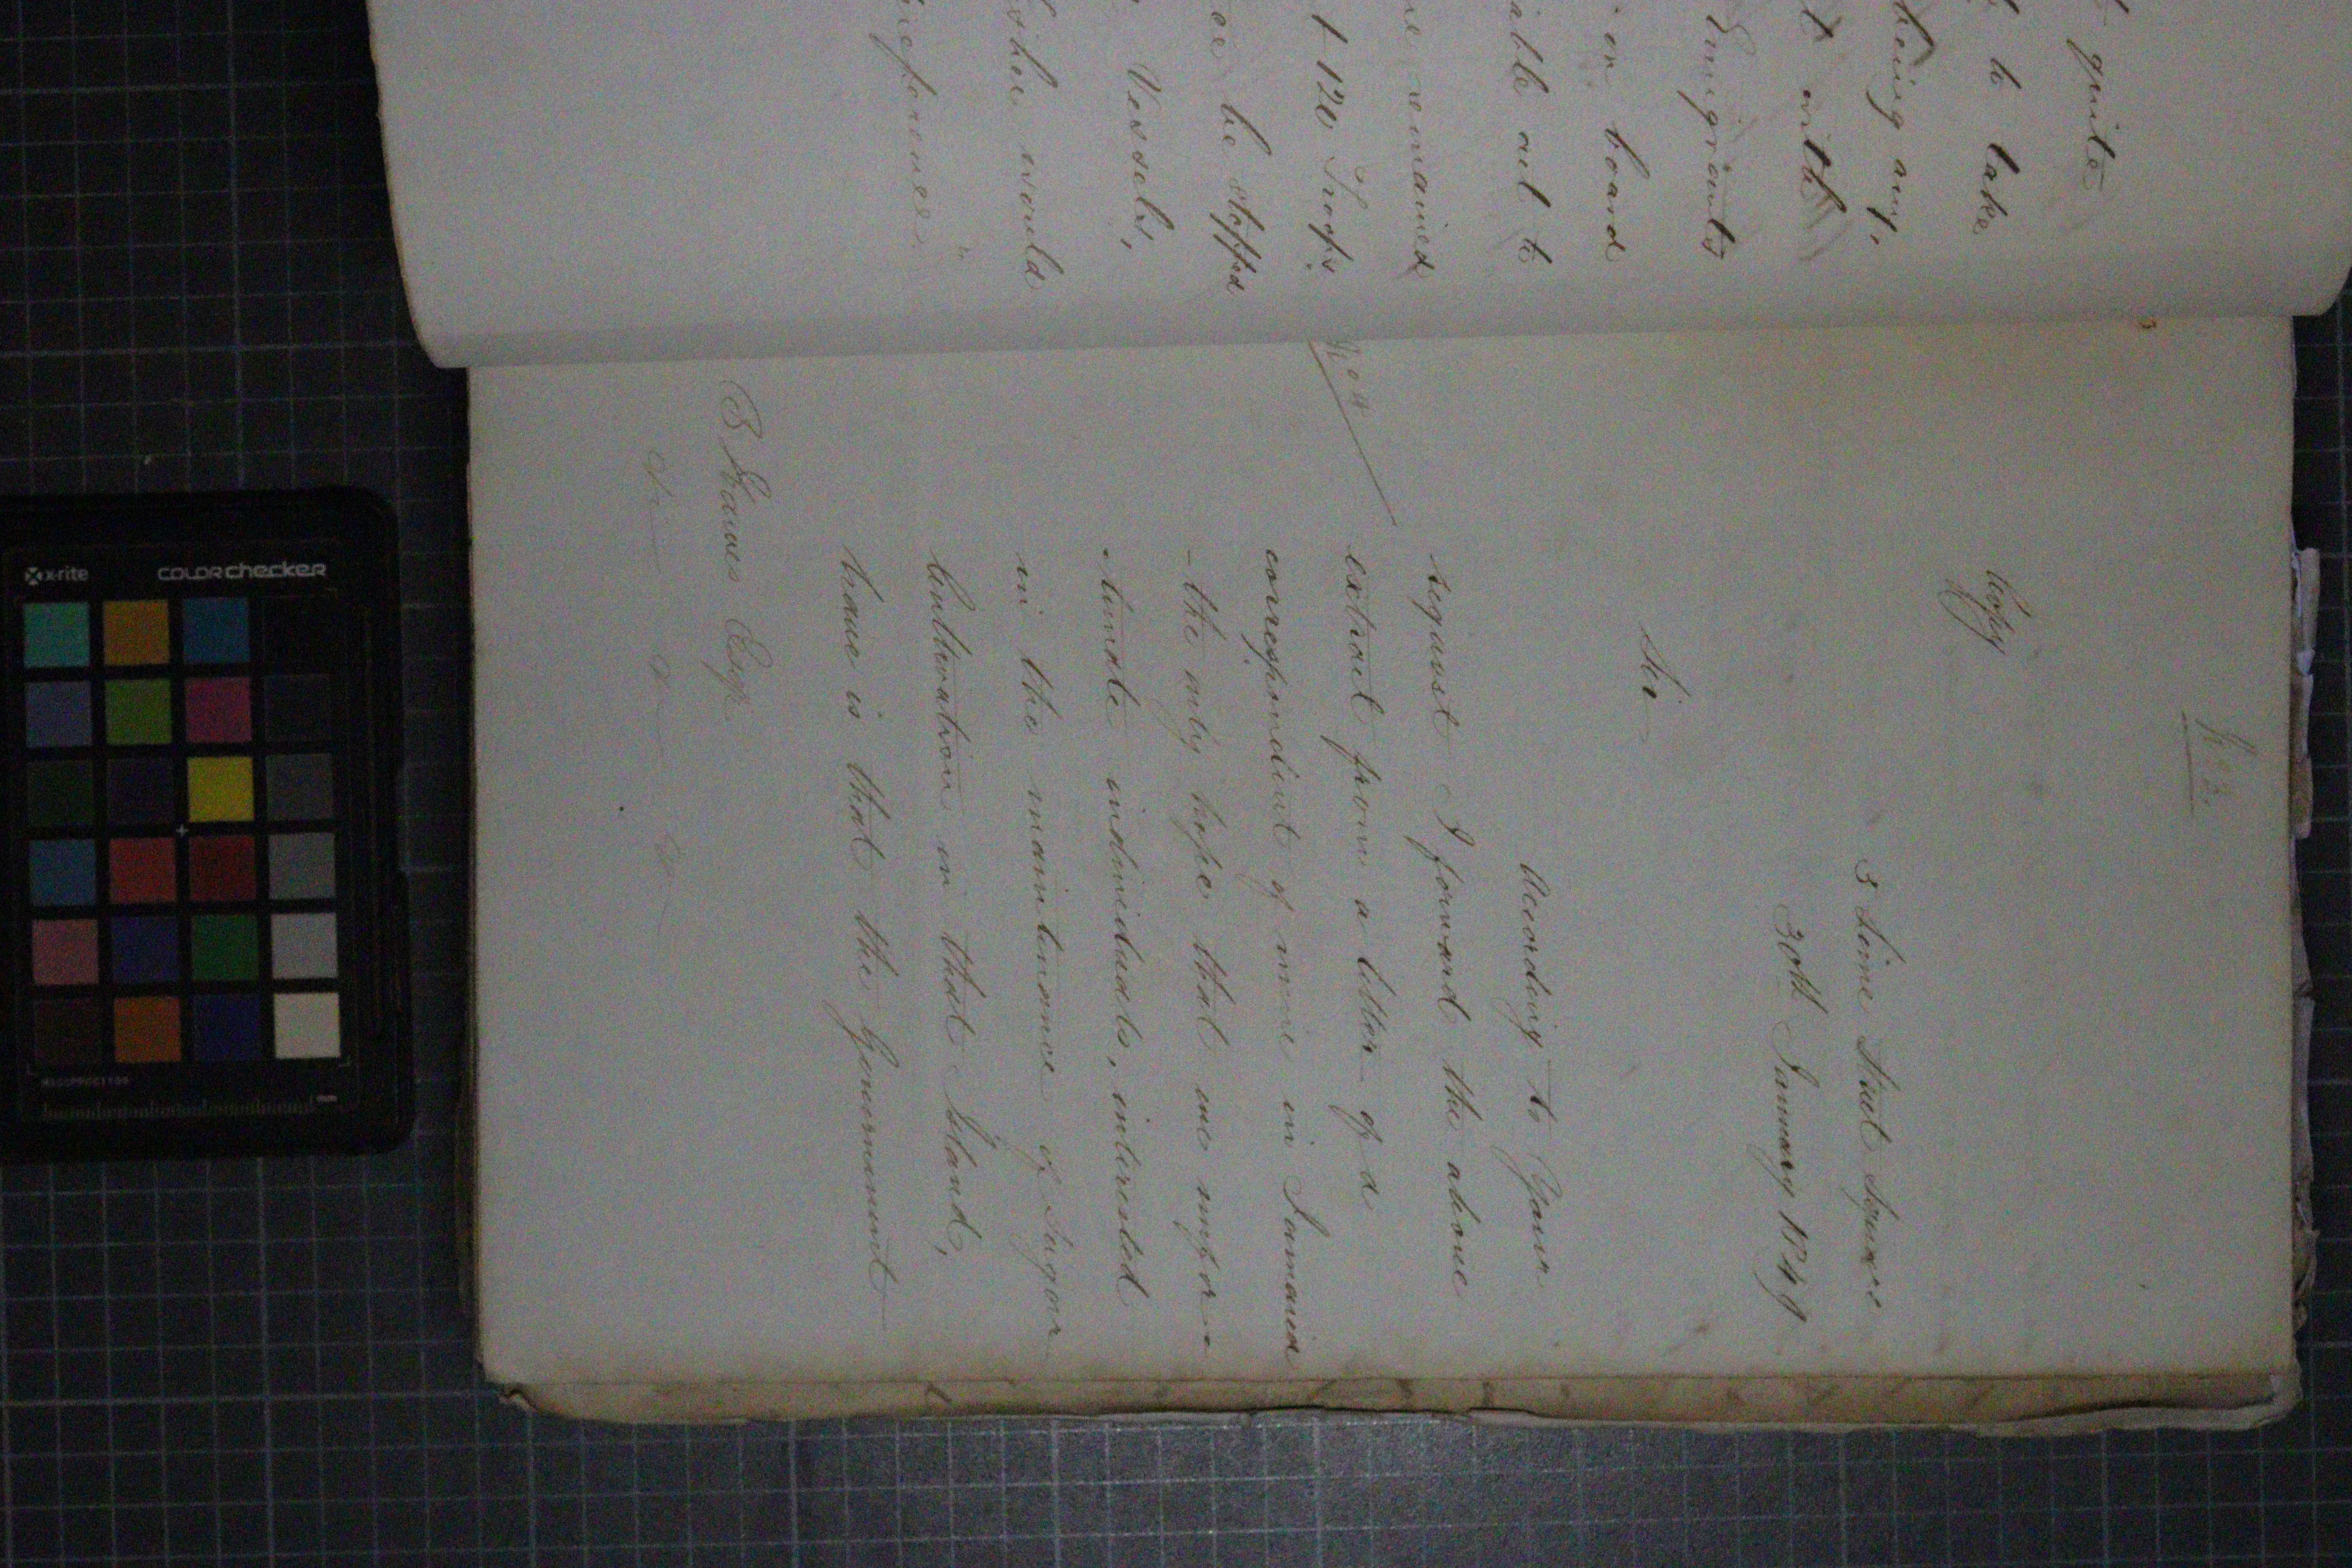 quite
to take
being any,
t with
Emigrants
on board
able out to
ne remained
t 120 Troops
be stopped
Vessels,
other would
No 2.
Copy
3 Lime Street Square
30th January 1849
Sir
According to Your
request I forward the above
extract from a letter of a
correspondent of mine in Jamaica
- the only hope that we unfor -
- tunate individuals, interested
in the maintenance of Sugar
Cultivation in that Island,
have is that the Government
B Hawes Esqr
x-rite colorchecker
mm